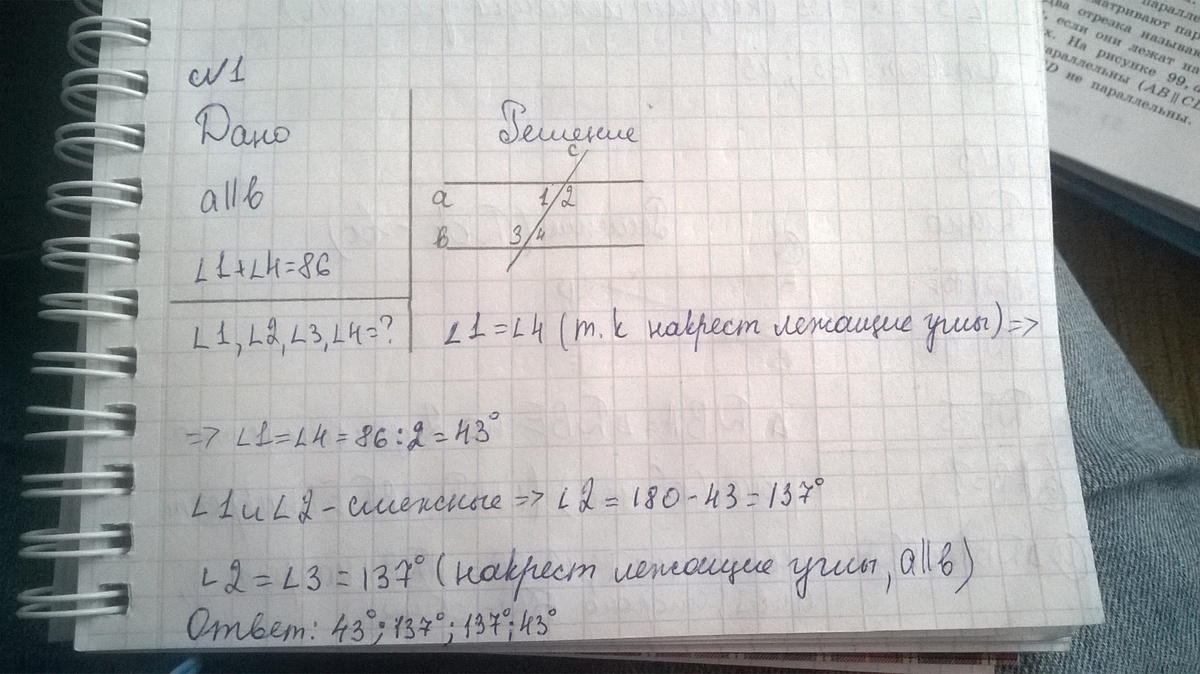 №1
Дано
a||b
∠1+∠4=86
∠1,∠2,∠3,∠4=?
Решение
c
a 1 2
b 3 4
∠1=∠4 (т.к накрест лежащие углы)=>
=> ∠1=∠4=86:2=43°
∠1 и ∠2 - смежные => ∠2=180-43=137°
∠2=∠3=137° (накрест лежащие углы, a||b)
Ответ: 43°;137°;137°;43°
паралле
матривают пар
два отрезка называю
, если они лежат на
х. На рисунке 99, а
араллельны (AB||C
D не параллельны.